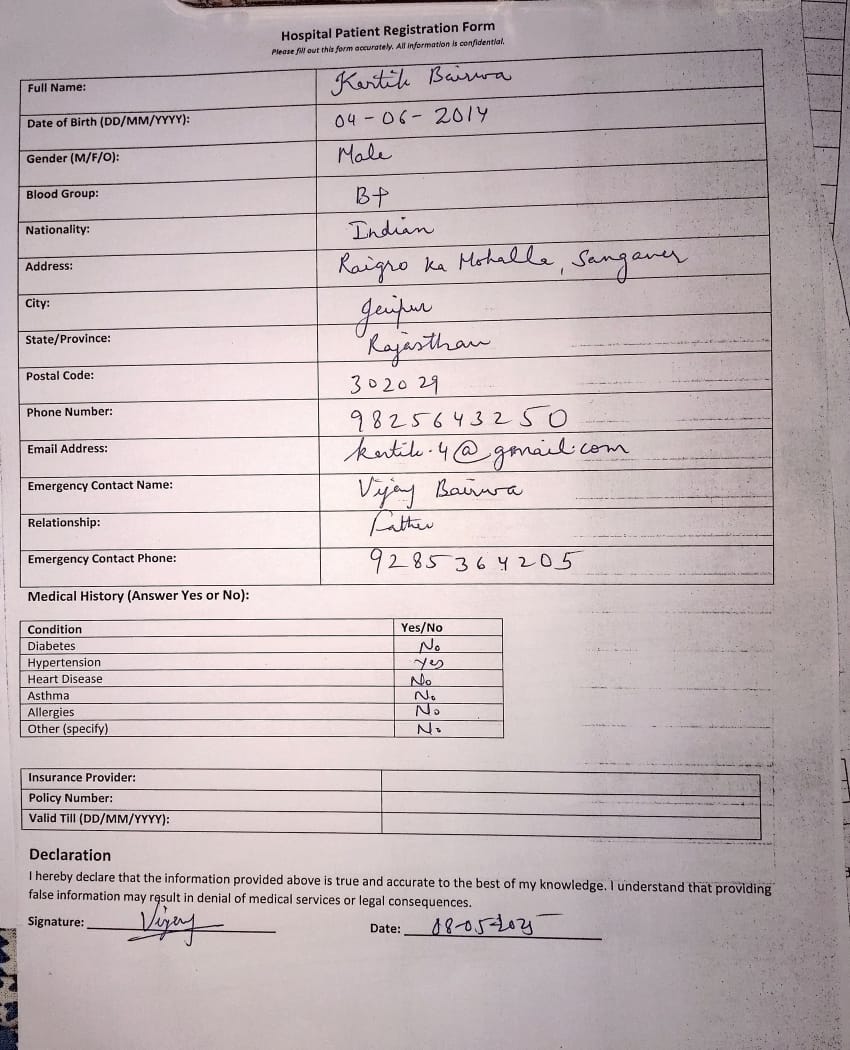 Hospital Patient Registration Form
Please fill out this form accurately. All information is confidential.
Full Name: Kartik Bairwa
Date of Birth (DD/MM/YYYY): 04-06-2014
Gender (M/F/O): Male
Blood Group: B+
Nationality: Indian
Address: Raigro Ka Mohalla, Sanganer
City: Jaipur
State/Province: Rajasthan
Postal Code: 302029
Phone Number: 9825643250
Email Address: kartik.4@gmail.com
Emergency Contact Name: Vijay Bairwa
Relationship: Father
Emergency Contact Phone: 9285364205
Medical History (Answer Yes or No):
Condition Yes/No
Diabetes No
Hypertension Yes
Heart Disease No
Asthma No
Allergies No
Other (specify) No
Insurance Provider:
Policy Number:
Valid Till (DD/MM/YYYY):
Declaration
I hereby declare that the information provided above is true and accurate to the best of my knowledge. I understand that providing
false information may result in denial of medical services or legal consequences.
Signature: Vijay Date: 08-05-2025